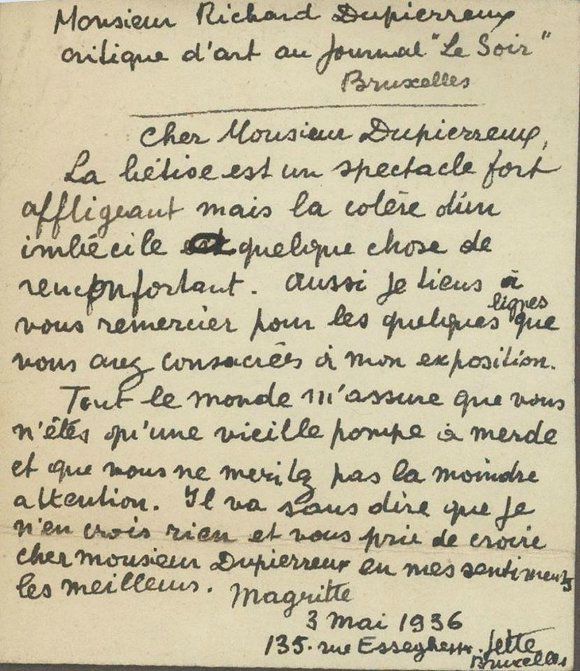 Monsieur Richard Dupierreux
critique d'art au Journal "Le Soir"
Bruxelles
Cher Monsieur Dupierreux,
La bêtise est un spectacle fort
affligeant mais la colère d'un
imbécile a quelque chose de
reconfortant. Aussi je tiens à
vous remercier pour les quelques lignes que
vous avez consacrées à mon exposition.
Tout le monde m'assure que vous
n'êtes qu'une vieille pompe à merde
et que vous ne meritez pas la moindre
attention. Il va sans dire que je
n'en crois rien et vous prie de croire
cher monsieur Dupierreux en mes sentiments
les meilleurs. Magritte
3 mai 1936
135. rue Esseghem. Jette
Bruxelles